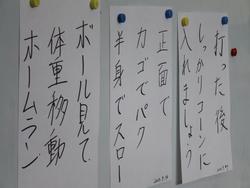 打った後
しっかりコーンに
入れましょう
正面で
カゴでパク
半身でスロー
ボール見て
体重移動
ホームラン